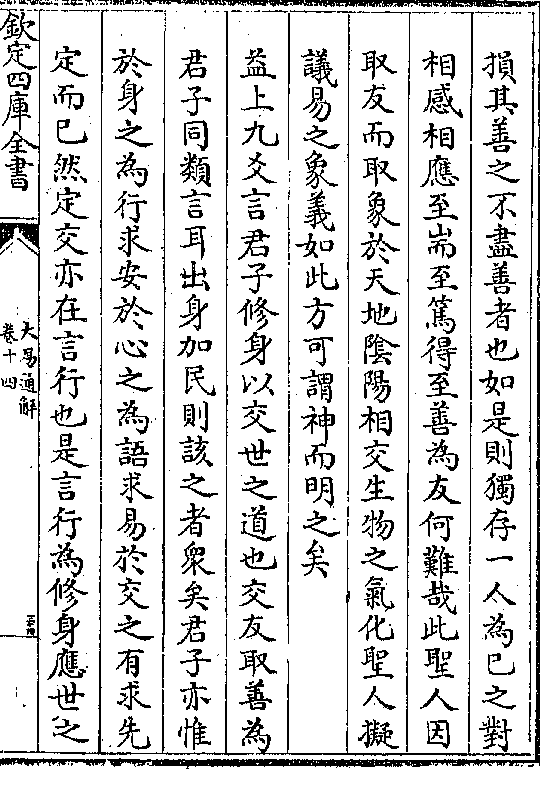 損其善之不盡善者也如是則獨存一人為己之對
相感相應至耑至篤得至善為友何難哉此聖人因
取友而取象於天地隂陽相交生物之氣化聖人擬
議易之象義如此方可謂神而明之矣
益上九爻言君子修身以交世之道也交友取善為
君子同類言耳出身加民則該之者衆矣君子亦惟
於身之為行求安於心之為語求易於交之有求先
定而已然定交亦在言行也是言行為修身應世之
欽定四庫全書
大易通解
卷十四